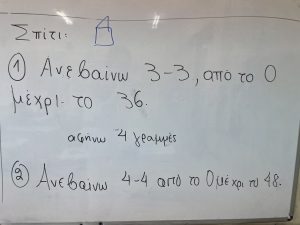 Σπίτι:
① Ανεβαίνω 3-3, από το 0
μέχρι το 36.
αφήνω 4 γραμμές
② Ανεβαίνω 4-4 από το 0 μέχρι το 48.